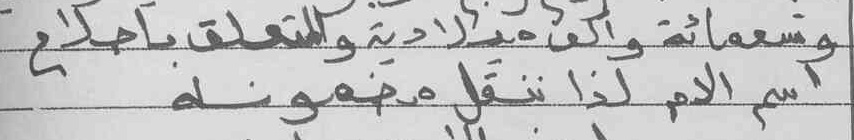 وتسعمائة والف ميلادية والمتعلق باصلاح
اسم الام لذا ننقل مضمونه